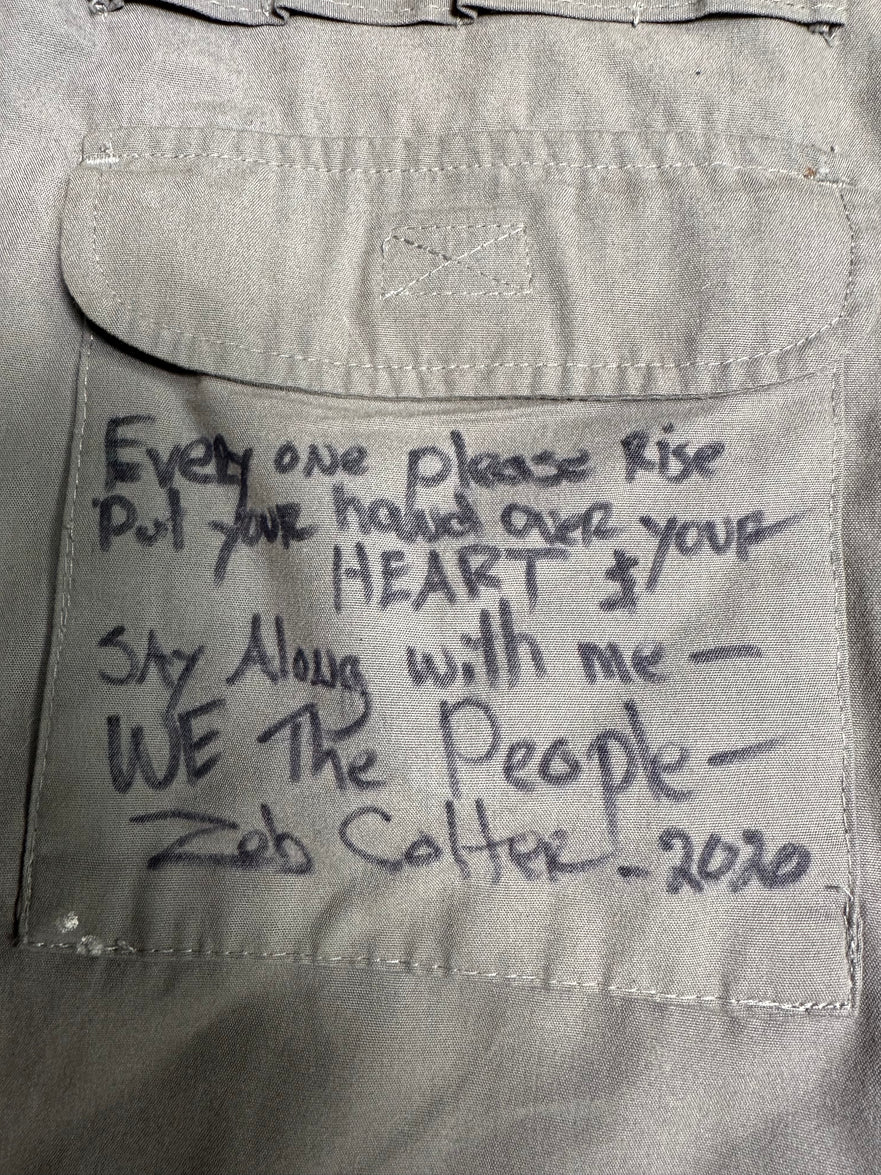 Every one please Rise
Put your hand over your
HEART &
SAy Along with me —
WE The People —
Zeb Colter - 2020